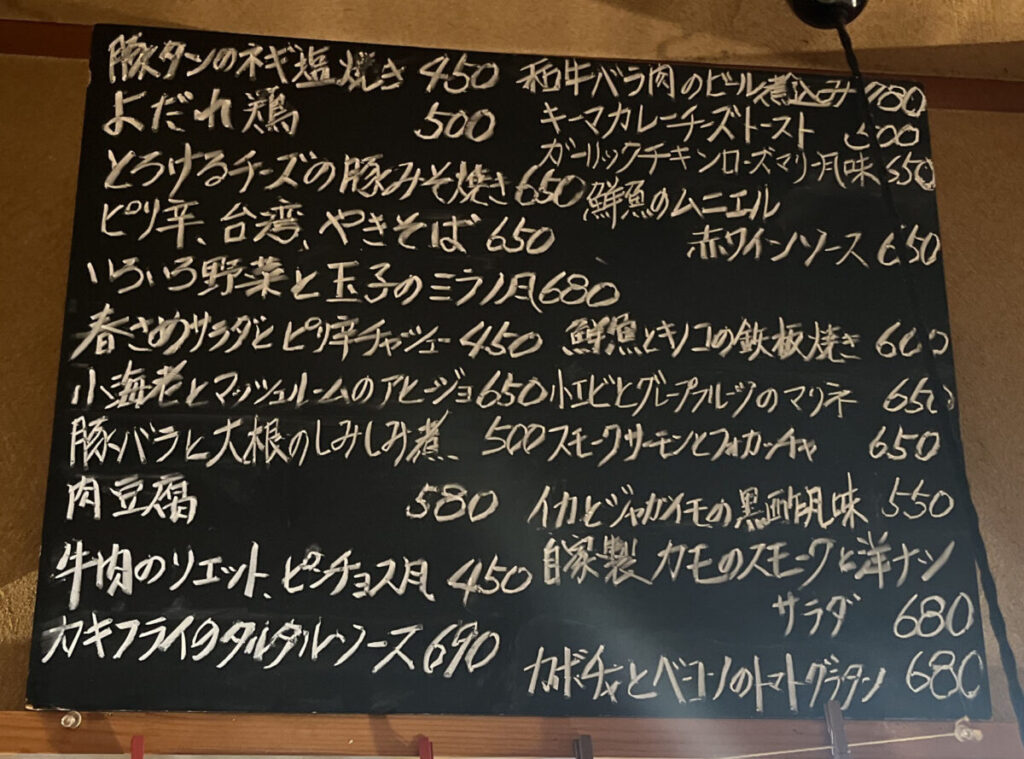 豚タンのネギ塩焼き 450
よだれ鶏 500
とろけるチーズの豚みそ焼き 650
ピリ辛、台湾、やきそば 650
いろいろ野菜と玉子のミラノ風 680
春さめサラダとピリ辛チャーシュー 450
小海老とマッシュルームのアヒージョ 650
豚バラと大根のしみしみ煮 500
肉豆腐 580
牛肉のリエット、ピンチョス風 450
カキフライのタルタルソース 690
和牛バラ肉のビール煮込み 780
キーマカレーチーズトースト
ガーリックチキンローズマリー風味 650
鮮魚のムニエル
赤ワインソース 650
鮮魚とキノコの鉄板焼き 600
小エビとグレープフルーツのマリネ 650
スモークサーモンとフォカッチャ 650
イカとジャガイモの黒酢風味 550
自家製 カモのスモークと洋ナシ
サラダ 680
カボチャとベーコンのトマトグラタン 680